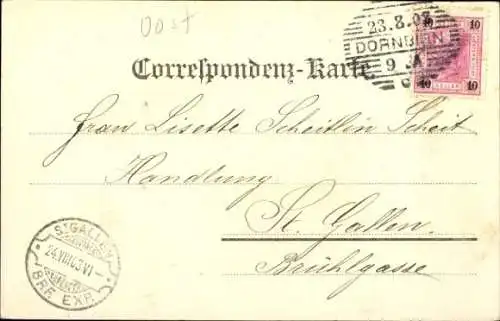 Oost
23.8.03
DORNBIRN
9
10 10
10 10
Correspondenz-Karte
Frau Lisette Scheitlin Scheit
Handlung
St. Gallen.
Brühlgasse
ST GALLEN
24.VIII.03.VI
BRF. EXP.